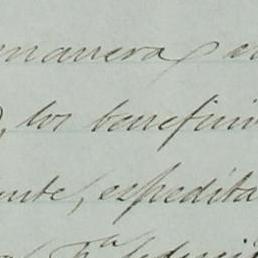 manera e
, los benefici
ente, expedita